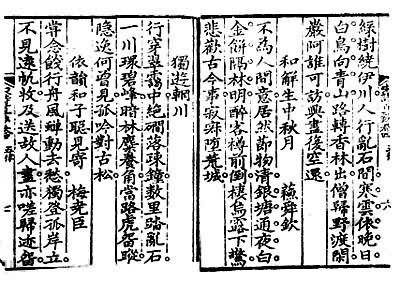 緑樹繞伊川人行亂石間寒雲依晚日
白鳥向青山路轉香林出僧歸野渡閒
巖阿誰可訪興盡復空還
和解生中秋月 蘇舜欽
不為人間意居然節物清銀塘通夜白
金餅隔林明醉客樽前倒棲烏露下驚
悲歡古今事寂寂墮荒城
獨遊輞川
行穿翠靄中絶磵落踈鐘數里踏亂石
一川環碧峰暗林麋養角當路虎留蹤
隱逸何曾見孤吟對古松
依韻和子聰見寄 梅堯臣
嘗念餞行舟風蟬動去愁獨登孤岸立
不見遠帆收及送故人盡亦嗟歸迹留